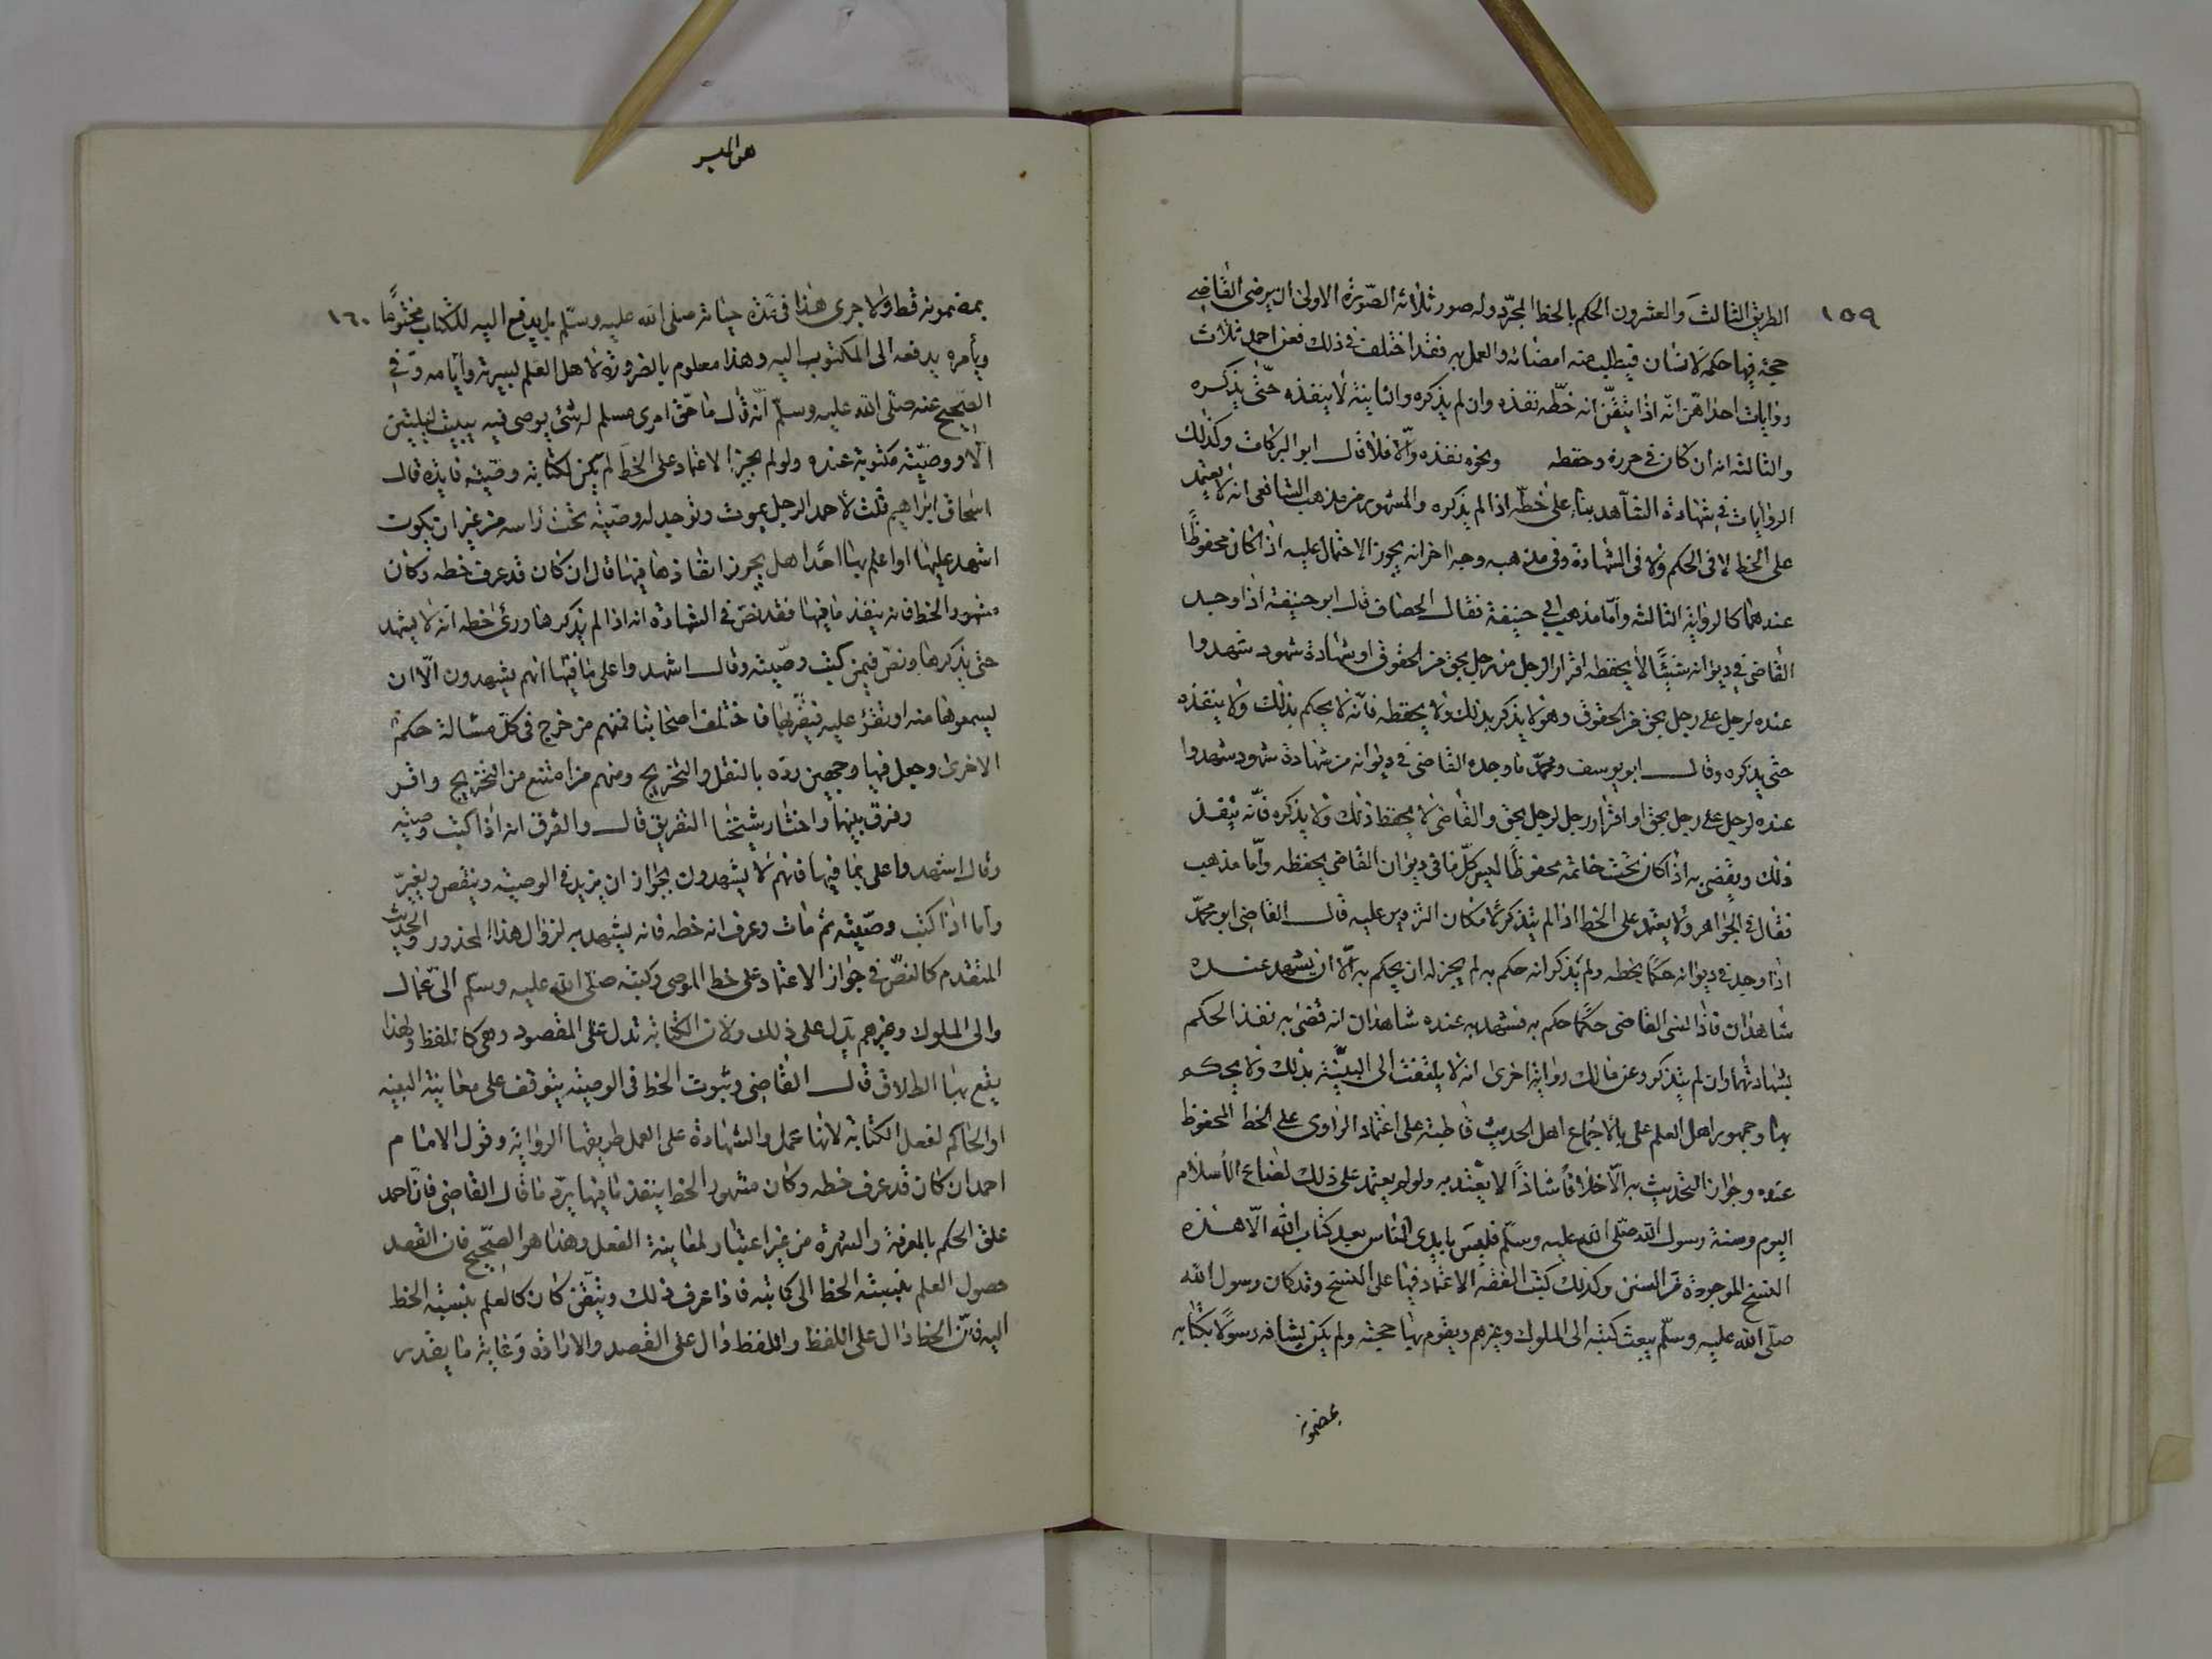 ١٥٩
الطريق الثالث والعشرون الحكم بالخط المجرّد وله صور ثلاثه الصّورة الاولى ان يرى القاضي
حجة فيها حكمه لانسان فيطلب منه امضائه والعمل به فقد اختلف في ذلك فعن احمد ثلاث
روايات احداهنّ انه اذا تيقّن انه خطّه نفذه وان لم يذكره والثانية لا ينفذه حتّى يذكره
والثالثه انه ان كان في حرزه وحفظه ونحوه نفذه والّا فلا قال ابو البركات وكذلك
الروايات في شهادة الشاهد بناءً على خطّه اذا لم يذكره والمشهور من مذهب الشافعي انه لا يعتمد
على الخط لا في الحكم ولا في الشهادة وفي مذهبه وجه اخر انه يجوز الاحتمال عليه اذا كان محفوظًا
عندهما كالرواية الثالثه وأمّا مذهب ابي حنيفة فقال الخصاف قال ابو حنيفة اذا وجد
القاضي في ديوانه شيئًا لا يحفظه اقرار الرجل من رجل بحق من الحقوق او شهادة شهود شهدوا
عنده لرجل على رجل بحق من الحقوق وهو لا يذكر بذلك ولا يحفظه فانّه لا يحكم بذلك ولا ينفذه
حتّى يذكره وقال ابو يوسف ومحمّد ما وجده القاضي في ديوانه من شهادة شهود شهدوا
عنده لرجل على رجل بحق او اقرار رجل لرجل بحق والقاضى لا يحفظ ذلك ولا يذكره فانّه ينفذ
ذلك ويقضي به اذا كان تحت خاتمه محفوظًا ليس كلّ ما في ديوان القاضي يحفظه وأمّا مذهب
فقال في الجواهر ولا يعتمد على الخط اذا لم يتذكر لامكان التزوير عليه قال القاضي ابو محمّد
اذا وجد في ديوانه حكمًا بخطه ولم يذكر انه حكم به لم يجز له ان يحكم به الّا ان يشهد عنده
شاهدان فاذا نسى القاضي حكمًا حكم به فشهد به عنده شاهدان انه قضى به نفذ الحكم
بشهادتهما وان لم يتذكر وعن مالك رواية اخرى انه لا يلتفت الى البيّنة بذلك ولا يحكم
بها وجمهور اهل العلم على بالاجماع اهل الحديث قاطبة على اعتماد الراوى على الخط المحفوظ
عنده وجواز التحديث به الّا خلافًا شاذًا لا يعتد به ولو لم يعتمد على ذلك لضاع الاسلام
اليوم وسنة رسول الله صلّى الله عليه وسلّم فليس بايدى الناس بعد كتاب الله الّا هذه
النسخ الموجودة من السنن وكذلك كتب الفقه الاعتماد فيها على النسخ وقد كان رسول الله
صلّى الله عليه وسلّم يبعث كتبه الى الملوك وغيرهم ويقوم بها حجته ولم يكن يشافه رسولًا بكتابه
بمضمونه
١٦٠
بمضمونه قط ولا جرى هذا في مدّة حياته صلى الله عليه وسلّم بل يدفع اليه الكتاب مختومًا
ويأمره بدفعه الى المكتوب اليه وهذا معلوم بالضرورة لاهل العلم بسيرته وأيامه وفي
الصّحيح عنه صلّى الله عليه وسلّم انّه قال ما حقّ امرى مسلم له شئ يوصى فيه يبيت ليلتين
الّا ووصيّته مكتوبة عنده ولو لم يجز الاعتماد على الخط لم يكن لكتابة وصيّته فايده قال
اسحاق ابراهيم قلت لأحمد الرجل يموت وتوجد له وصيّة تحت رأسه من غير ان يكون
اشهد عليها او اعلم بها احدًا هل يجوز انفاذها فيها قال ان كان قد عرف خطه وكان
مشهور الخط فانه ينفذ ما فيها فقد نصّ في الشهادة انه اذا لم يذكرها ورئ خطه انه لا يشهد
حتى يذكرها ونص فيمن كتب وصّيته وقال اشهدوا على ما فيها انهم يشهدون الّا ان
يسمعوها منه او تقرئ عليه فيقرّ بها فاختلف اصحابنا فمنهم من خرج في كلّ مسالة حكم
الاخرى وجعل فيها وجهين رده بالنقل والتخريج ومنهم من امتنع من التخريج واقر
وفرق بينها واختار شيخنا التفريق قال والفرق انه اذا كتب وصيّته
وقال اشهدوا على بما فيها فانهم لا يشهدون لجواز ان يزيد في الوصيّه وينقص ويغيّر
وأما اذا كتب وصّيته ثم مات وعرف انه خطه فانه يشهد به لزوال هذا المحذور والحديث
المتقدم كالنصّ في جواز الاعتماد على خط الموصى وكتبه صلّى الله عليه وسلّم الى عمّال
والى الملوك وغيرهم يدّل على ذلك ولان الكتابة تدل على المقصود وهى كاللفظ ولهذا
يقع بها الطلاق قال القاضي وثبوت الخط في الوصيّه يتوقف على معاينة البينه
او الحاكم لفعل الكتابة لانها عمل والشهادة على العمل طريقها الرواية وقول الامام
احمد ان كان قد عرف خطه وكان مشهور الخط ينفذ ما فيها يردّ ما قال القاضي فانّ احمد
علق الحكم بالمعرفة والشهرة من غير اعتبار لمعاينة الفعل وهذا هو الصّحيح فان القصد
حصول العلم بنسبته الخط الى كاتبه فاذا عرف ذلك وتيقّن كان كالعلم بنسبة الخط
اليه فانّ الخط دال على اللفظ واللفظ دال على القصد والارادة وغاية ما يقدر